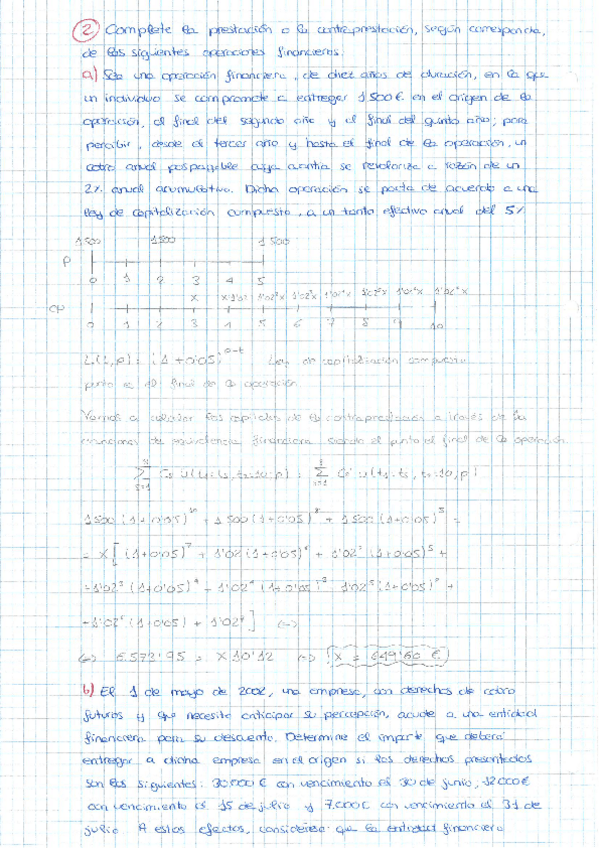 ② Complete la prestación o la contraprestación, según corresponda,
de las siguientes operaciones financieras.
a) Sea una operación financiera, de diez años de duración, en la que
un individuo se compromete a entregar 1500€ en el origen de la
operación, al final del segundo año y al final del quinto año; para
percibir, desde el tercer año y hasta el final de la operación, un
cobro anual pospagable cuya cuantía se revaloriza a razón de un
2% anual acumulativo. Dicha operación se pacta de acuerdo a una
ley de capitalización compuesta, a un tanto efectivo anual del 5%
1500 1500 1500
P
0 1 2 3 4 5
X X1'02 1'02²X
CP
0 1 2 3 4 5 6 7 8 9 10
Ley de capitalización compuesta
punto p al final de la operación
Vamos a calcular los capitales de la contraprestación a través de la
financiera siendo el punto el final de la operación.
1500 (1+0'05)¹⁰ + 1500 (1+0'05)⁸ + 1500 (1+0'05)⁵ =
= X [ (1+0'05)⁷ + 1'02 (1+0'05)⁶ + 1'02² (1+0'05)⁵ +
(=) 6.573'95 = X 10'12 (=) X = 649'60 €
b) El 1 de mayo de 2002, una empresa, con derechos de cobro
futuros y que necesita anticipar su percepción, acude a una entidad
financiera para su descuento. Determine el importe que deberá
entregar a dicha empresa en el origen si los derechos presentados
son los siguientes: 30.000€ con vencimiento el 30 de junio; 12.000€
con vencimiento el 15 de julio y 7.000€ con vencimiento el 31 de
julio. A estos efectos, considérese que la entidad financiera